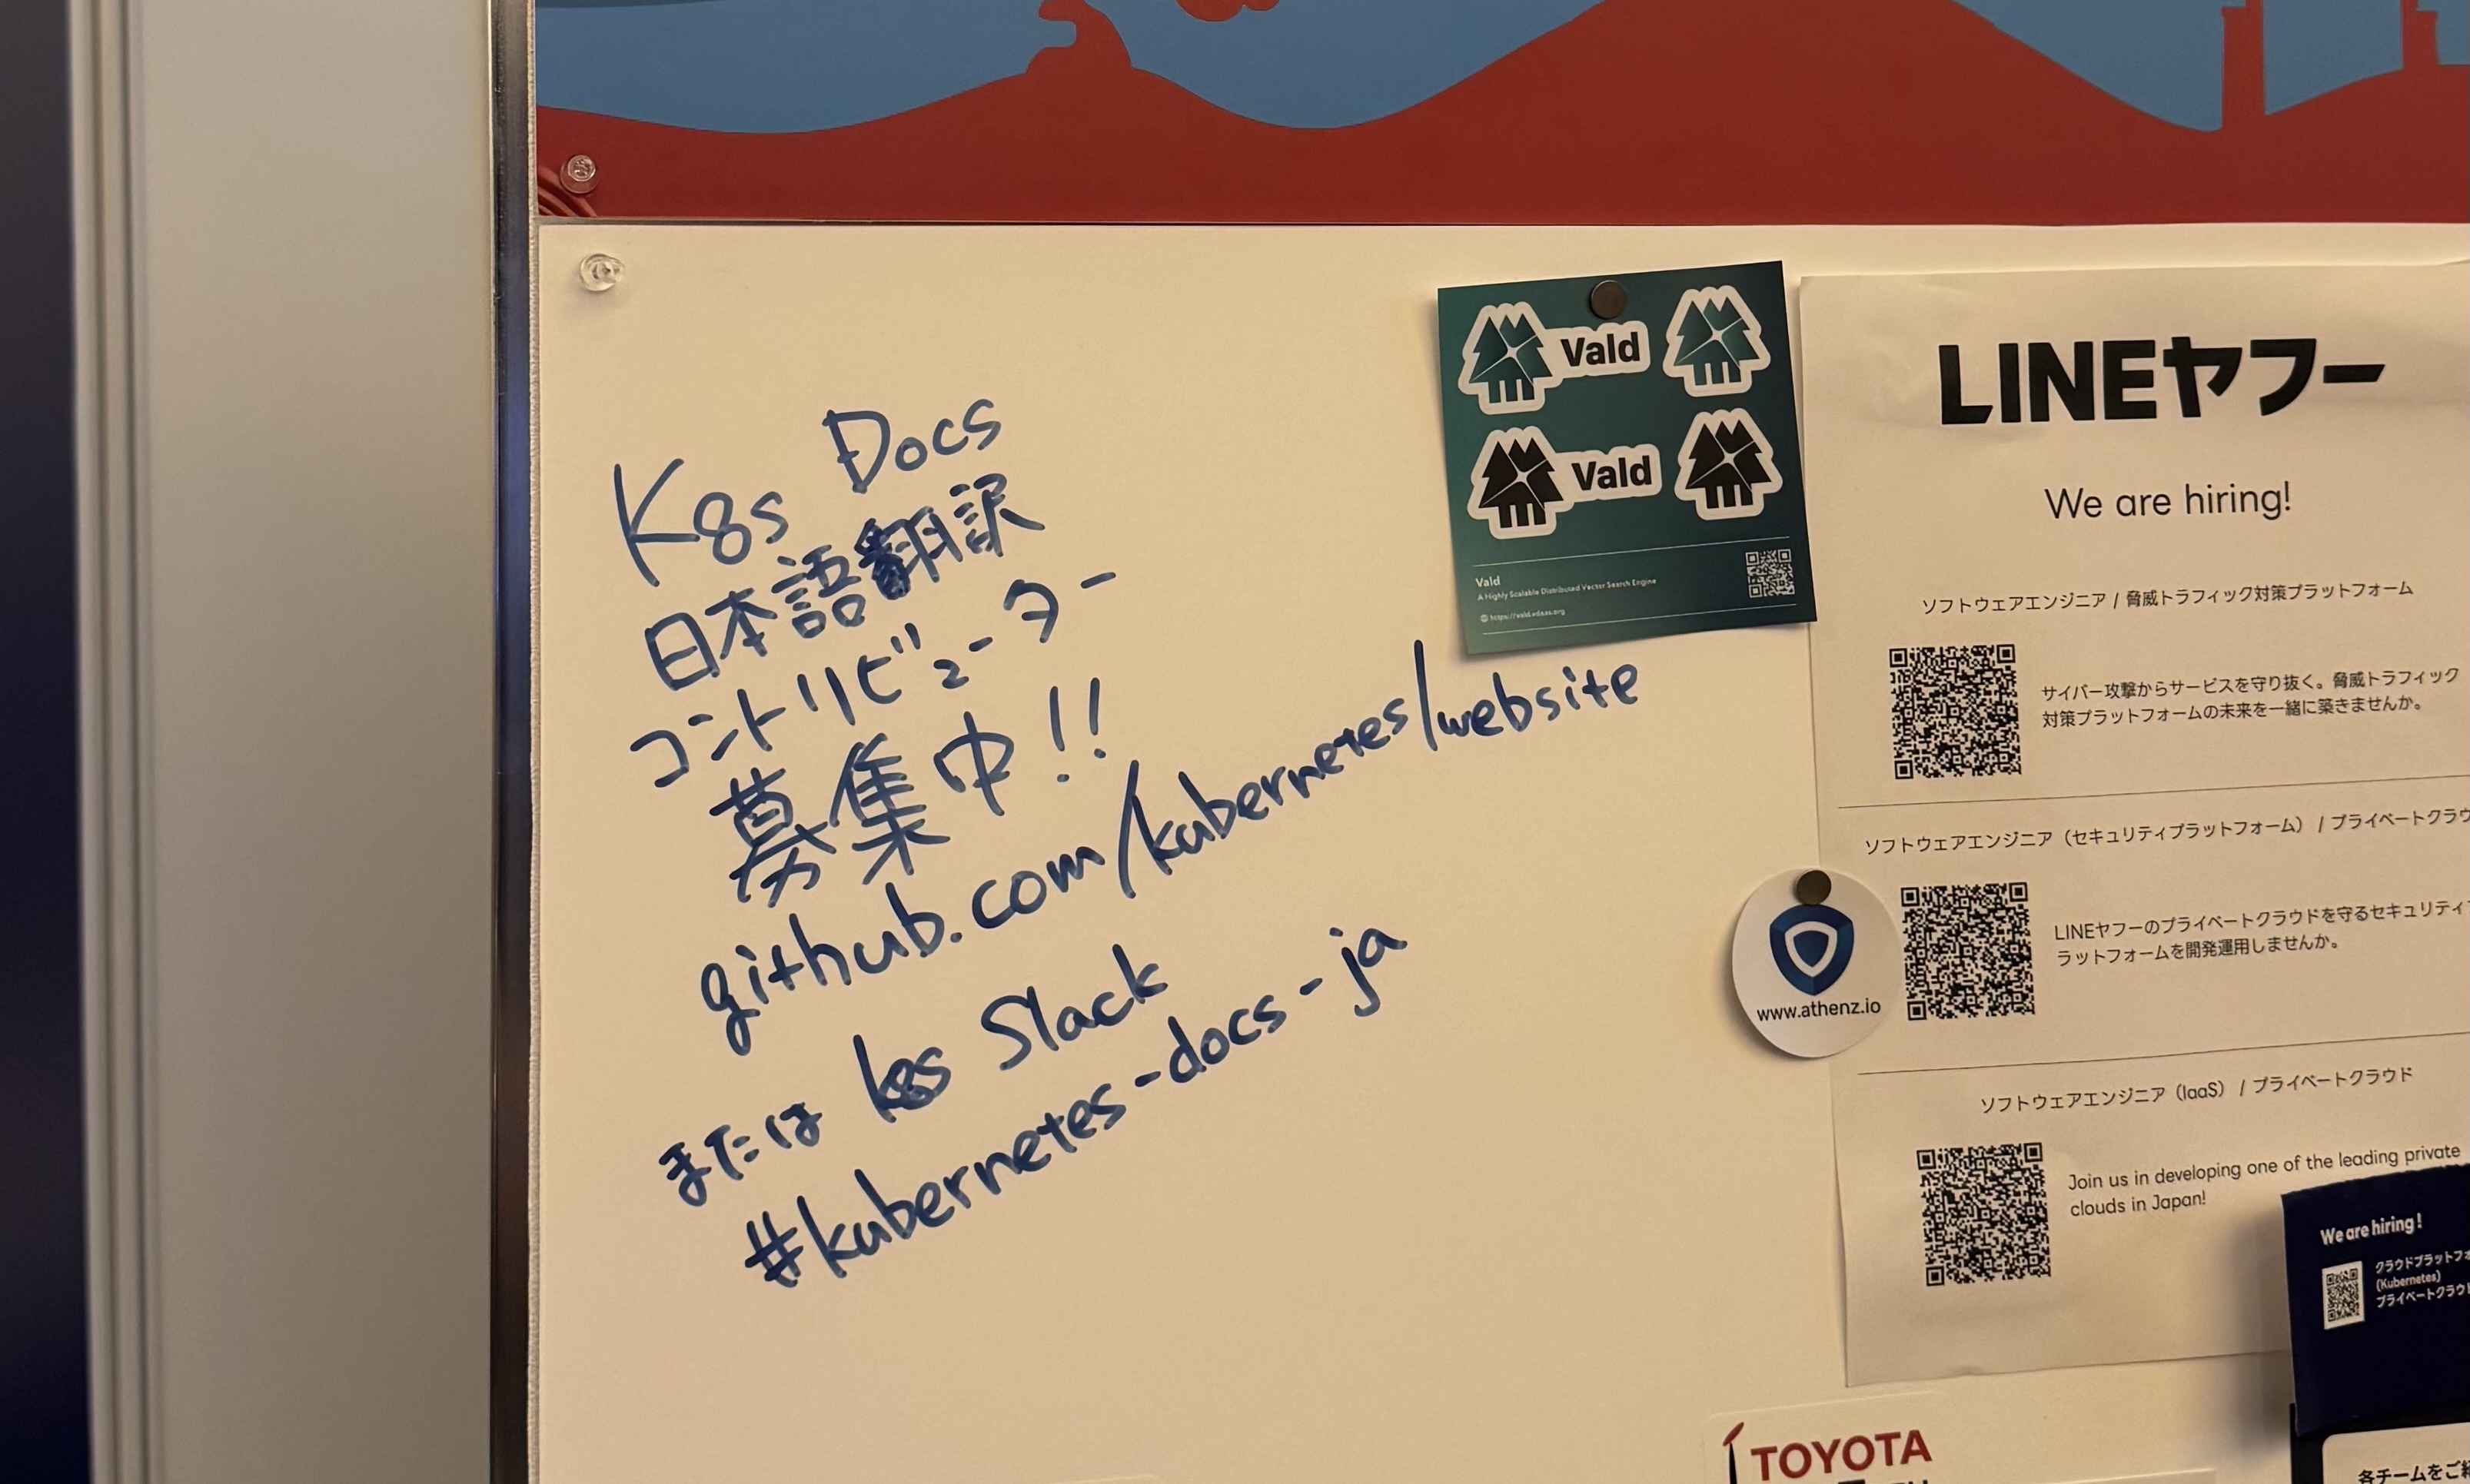 K8s Docs
日本語翻訳
コントリビューター
募集中!!
github.com/kubernetes/website
または k8s Slack
#kubernetes-docs-ja
Vald
Vald
Vald
A Highly Scalable Distributed Vector Search Engine
https://vald.vdaas.org
LINEヤフー
We are hiring!
ソフトウェアエンジニア / 脅威トラフィック対策プラットフォーム
サイバー攻撃からサービスを守り抜く。脅威トラフィック
対策プラットフォームの未来を一緒に築きませんか。
ソフトウェアエンジニア（セキュリティプラットフォーム） / プライベートクラウ
LINEヤフーのプライベートクラウドを守るセキュリティ
ラットフォームを開発運用しませんか。
www.athenz.io
ソフトウェアエンジニア（IaaS） / プライベートクラウド
Join us in developing one of the leading private
clouds in Japan!
We are hiring!
クラウドプラットフォ
(Kubernetes)
プライベートクラウ
TOYOTA
各チームをご